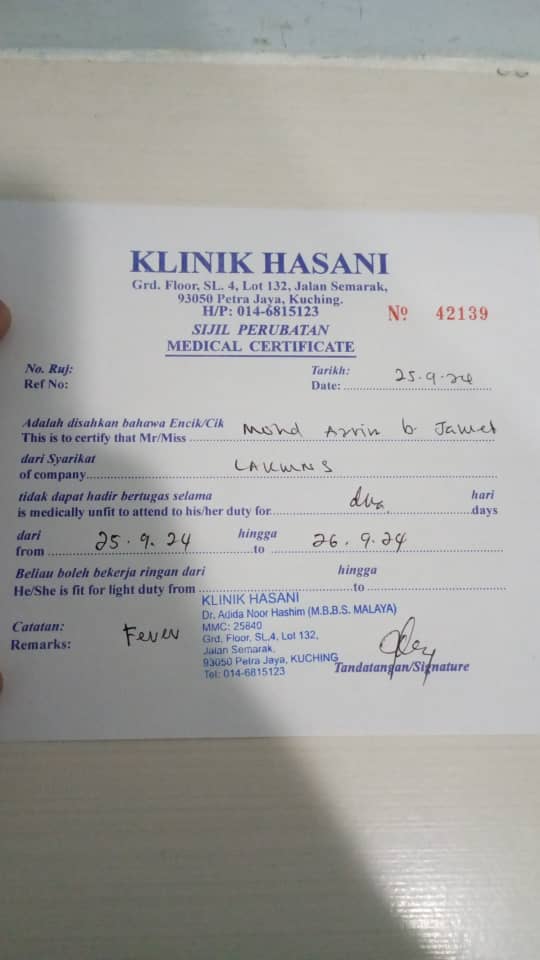 KLINIK HASANI
Grd. Floor, SL. 4, Lot 132, Jalan Semarak,
93050 Petra Jaya, Kuching.
H/P: 014-6815123
Nº 42139
SIJIL PERUBATAN
MEDICAL CERTIFICATE
No. Ruj:
Ref No:
Tarikh:
Date: 25.9.24
Adalah disahkan bahawa Encik/Cik
This is to certify that Mr/Miss Mohd b. Jamet
dari Syarikat
of company
tidak dapat hadir bertugas selama dua hari
is medically unfit to attend to his/her duty for days
dari hingga
from 25.9.24 to 26.9.24
Beliau boleh bekerja ringan dari hingga
He/She is fit for light duty from to
Catatan:
Remarks: Fever
KLINIK HASANI
Dr. Adida Noor Hashim (M.B.B.S. MALAYA)
MMC: 25840
Grd. Floor, SL,4, Lot 132,
Jalan Semarak,
93050 Petra Jaya, KUCHING
Tel: 014-6815123
Tandatangan/Signature